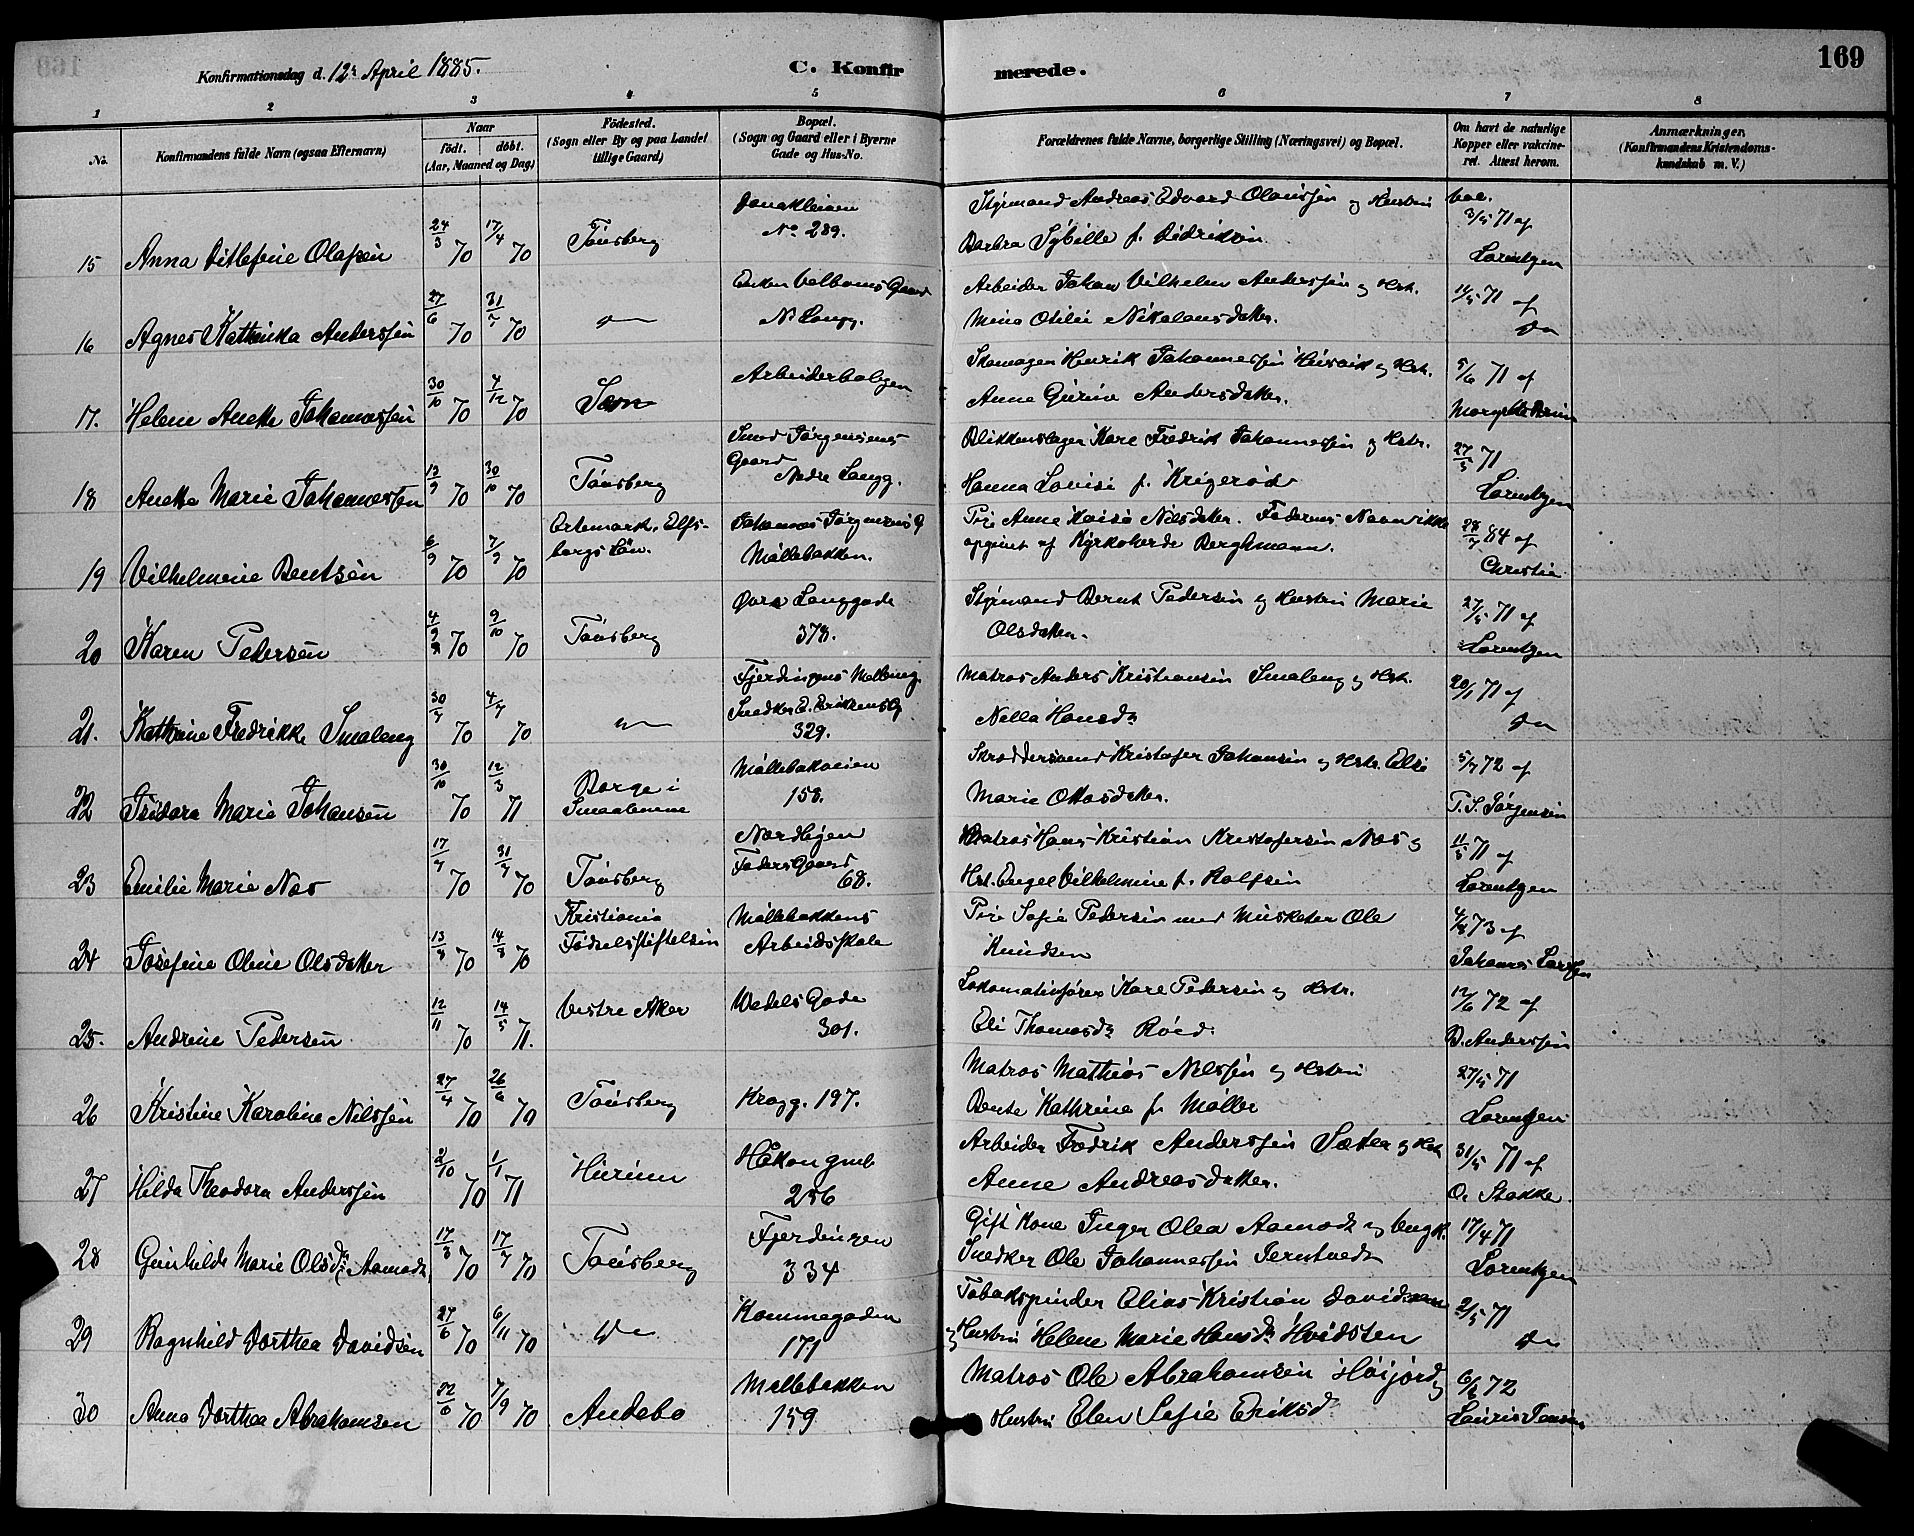 169
Konfirmationsdag d. 12te April 1885.
C. Konfirmerede.
1 2 3 4 5 6 7 8
No.
Konfirmandens fulde Navn (ogsaa Efternavn)
Naar
födt. döbt.
(Aar, Maaned og Dag)
Födested.
(Sogn eller By og paa Landet tillige Gaard)
Bopæl.
(Sogn og Gaard eller i Byerne Gade og Hus-No.
Forældrenes fulde Navne, borgerlige Stilling (Næringsvei) og Bopæl.
Om havt de naturlige Kopper eller vakcineret. Attest herom.
Anmærkninger.
(Konfirmandens Kristendomskundskab m. V.)
15 Anna Ditlefine Olafsen 24/3 70 17/4 70 Tönsberg No. 289.
Styrmand Andreas Edvard Olaussen og Hustru Barbra Sybille f. Didriksen
vac. 3/5 71 af Lorentzen
16 Agnes Kathinka Anderssen 27/6 70 31/7 70 do Enken Valboms Gaard N. Langg.
Arbeider Johan Vilhelm Anderssen og Hst. Mina Otilie Nikolausdatter.
14/5 71 af do
17. Helene Anette Johannessen 30/10 70 4/12 70 Sem Arbeiderboligen
Skomager Henrik Johannessen og Hst. Anne Gurine Andersdatter.
5/6 71 af
18 Anette Marie Johannessen 13/9 70 30/10 70 Tönsberg Smed Jörgensens Gaard Nedre Langg.
Blikkenslager Karl Fredrik Johannessen og Hstr. Hanna Lovise f. Krigeröd
27/5 71 Lorentzen
19 Vilhelmine Bentsen 6/9 70 7/9 70 Ertemark, Elfsborgs Län. Johannes Jörgensens G Möllebakken.
Pige Anne Kaisa Nilsdatter. Faderens Navn ikke opgivet af Kyrkoherde Berghmann.
28/7 84 af Christie
20 Karen Pedersen 4/9 70 9/10 70 Tönsberg Övre Langgade 378.
Styrmand Bernt Pedersen og Hustru Marie Olsdatter.
27/5 71 af Lorentzen
21. Kathrine Fredrikke Smaleng 30/4 70 4/7 70 do Fjerdingens Snedker E. Eriksens G 329.
Matros Anders Kristiansen Smaleng og Hst. Nella Hansdr
20/1 71 af do
22 Isidora Marie Johansen 30/10 70 12/3 71 Borge i Smaalenene Möllebakveien 158.
Skræddersvend Kristofer Johansen og Hst. Elise Marie Ottosdatter.
5/7 72 af T. S. Jörgensen
23 Emilie Marie Næs 17/7 70 31/7 70 Tönsberg Nordbyen Faders Gaard 68.
Matros Hans Kristian Kristofersen Næs og Hst. Engel Vilhelmine f. Rolfsen
11/5 71 af Lorentzen
24 Josefine Oline Olsdatter 13/8 70 14/8 70 Kristiania Födselsstiftelsen Möllebakkens Arbeidsskole
Pige Sofie Pedersen med Musketer Ole Knudsen
4/8 73 af Johannes Larssen
25. Andrine Pedersen 12/11 70 14/5 71. Vestre Aker Wedels Gade 301.
Lokomotivförer Karl Pedersen og Hstr. Eli Thomasdr Röed.
12/6 72 af B. Anderssen
26 Kristine Karoline Nilssen 27/4 70 26/6 70 Tönsberg Krogg. 197.
Matros Mathias Nilssen og Hstru Bente Kathrine f. Möller
27/5 71 Lorentzen
27 Hilda Theodora Anderssen 2/10 70 1/1 71 Hurum Håkon gmb 256
Arbeider Fredrik Anderssen Sæter og Hst. Anne Andreasdatter.
31/5 71 af O. Stakke.
28 Gunhilde Marie Olsdr. (Aamodt 17/3 70 17/7 70 Tönsberg Fjerdingen 334
Gift Kone Inger Olea Aamodt og Ungk. Snedker Ole Johannessen Jerntvedt
17/4 71 Lorentzen
29 Ragnhild Dorthea Davidsen 27/6 70 6/11 70 do Kammegaden 171
Tobakspinder Elias Kristian Davidsen og Hustru Helene Marie Hansdr Hvidsten
2/5 71 do
30 Anna Dorthea Abrahamsen 22/8 70 7/9 70 Andebo Möllebakken 159
Matros Ole Abrahamsen Höijord og Hustru Elen Sofie Eriksd
6/6 72 Lauris Jensen